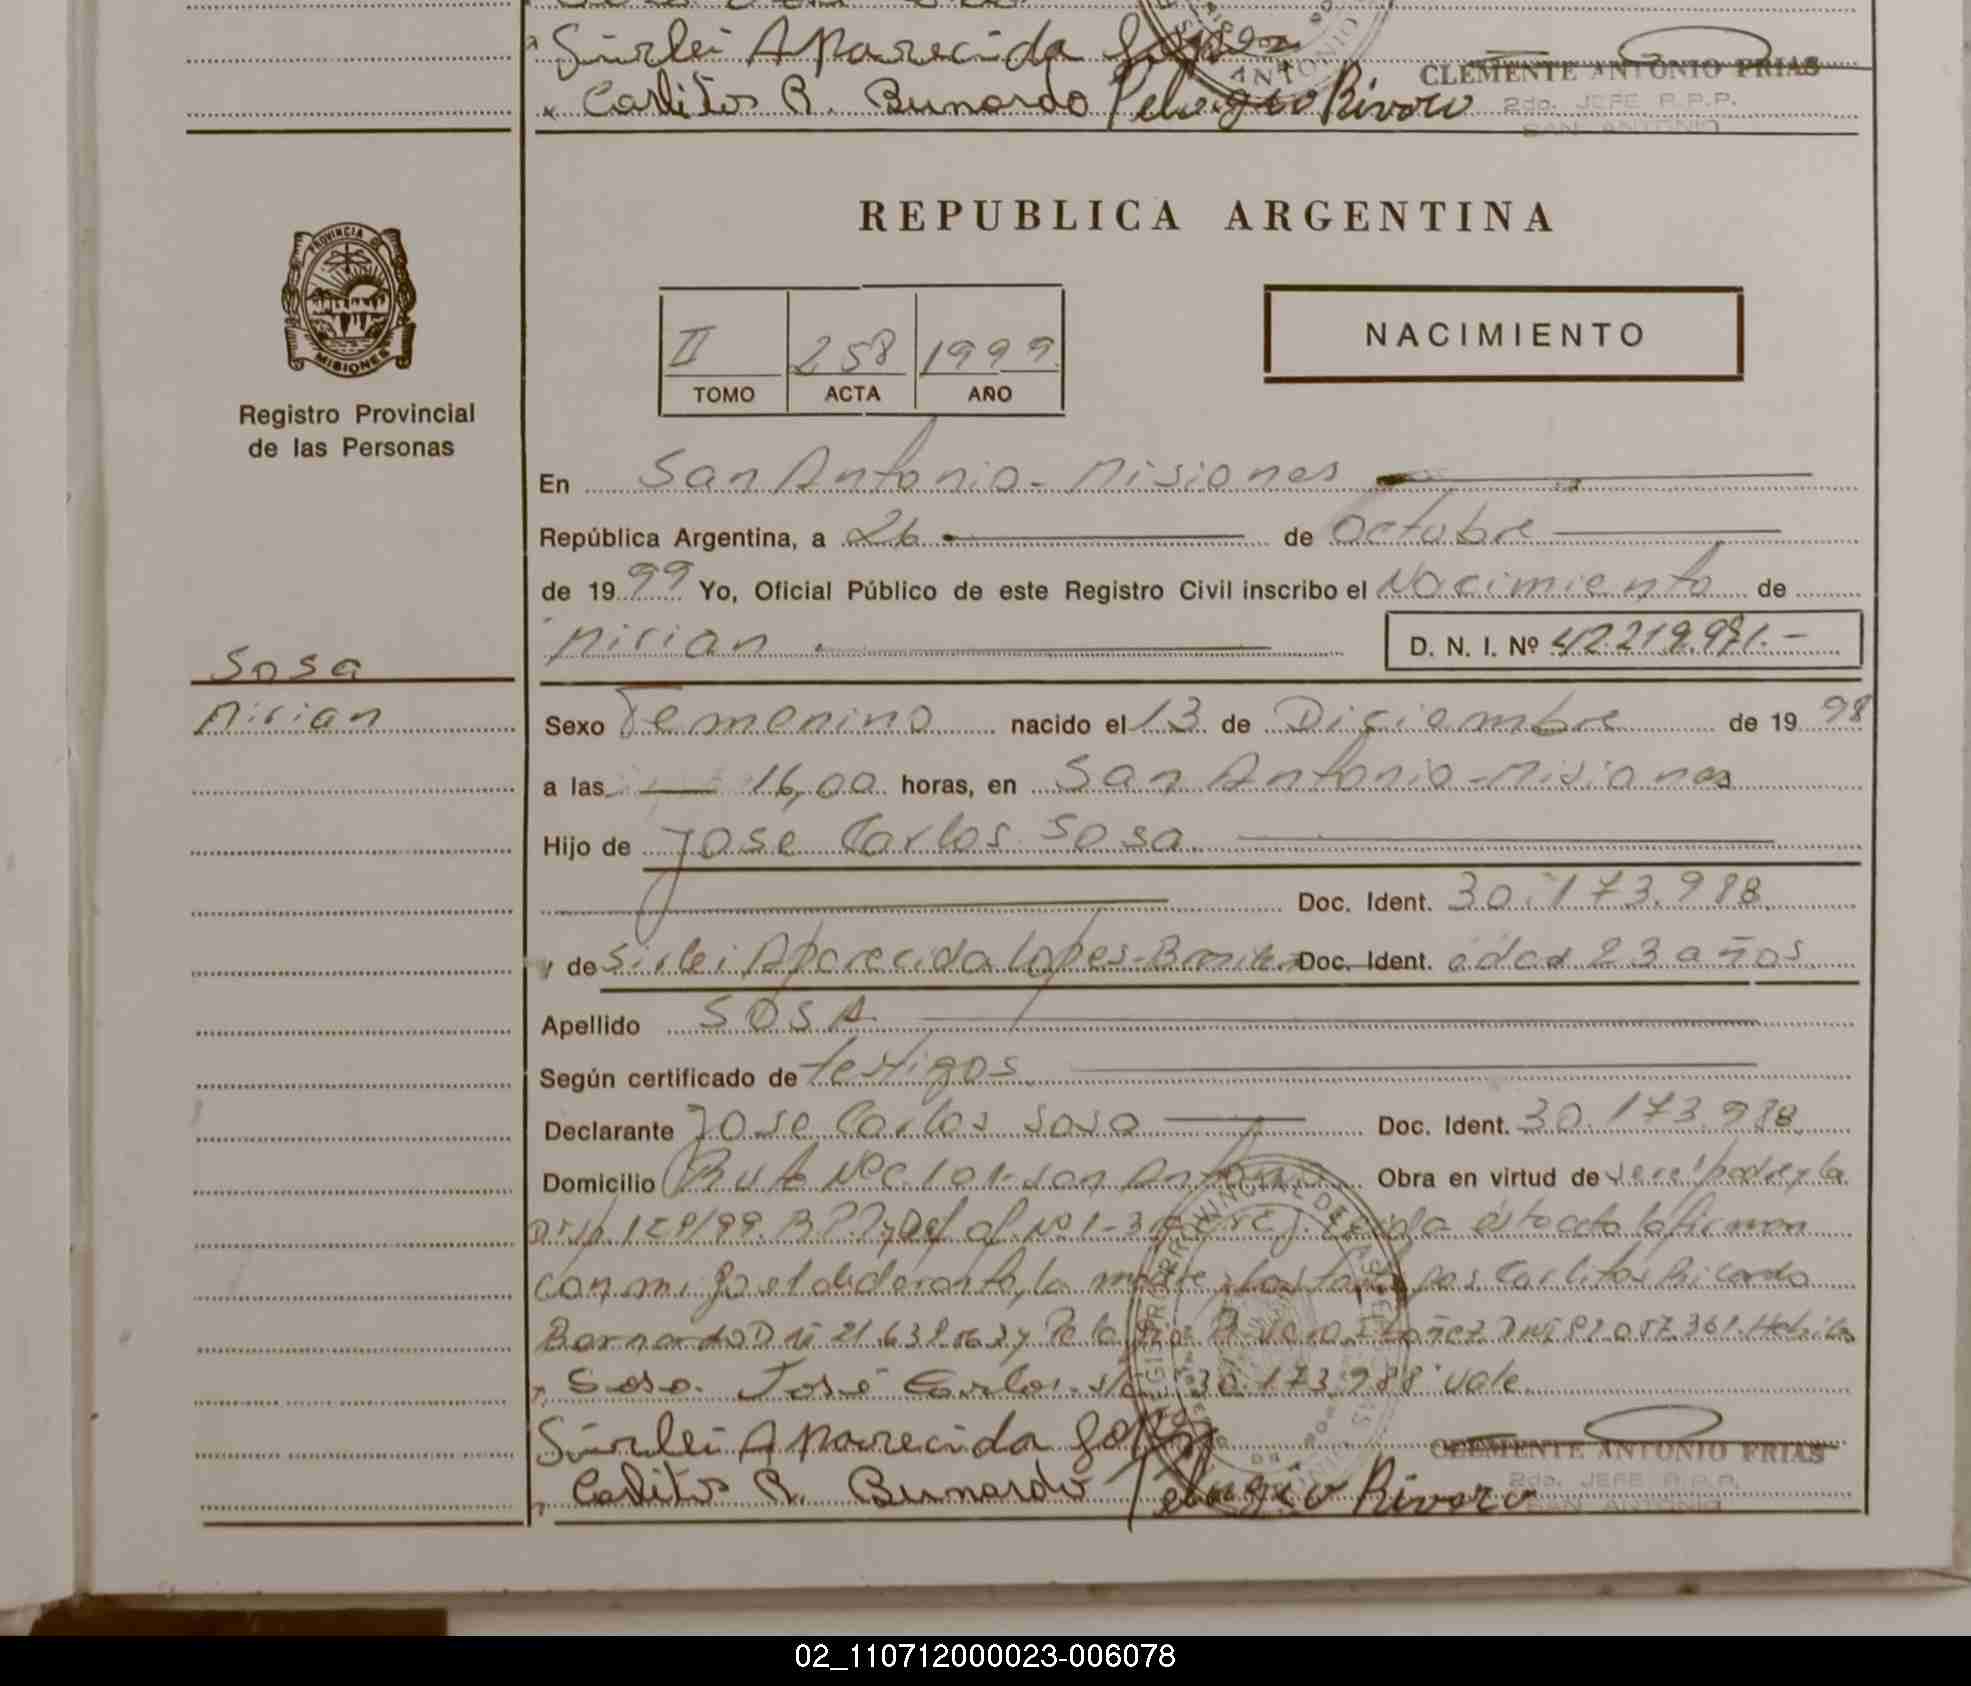 Sirlei Aparecida Lopes
ANTONIO
CLEMENTE ANTONIO FRIAS
Carlitos R. Bernardo Pelagio Rivero
2do. JEFE R.P.P.
SAN ANTONIO
REPUBLICA ARGENTINA
PROVINCIA DE
MISIONES
Registro Provincial
de las Personas
II 258 1999
TOMO ACTA AÑO
NACIMIENTO
En San Antonio - Misiones
República Argentina, a 26 de Octubre
de 1999 Yo, Oficial Público de este Registro Civil inscribo el Nacimiento de
Mirian D. N. I. Nº 42.219.971.-
Sosa
Mirian
Sexo Femenino nacido el 13 de Diciembre de 1998
a las 16,00 horas, en San Antonio - Misiones
Hijo de Jose Carlos Sosa
Doc. Ident. 30.173.988
y de Sirlei Aparecida Lopes - Doc. Ident. edad 23 años
Apellido SOSA
Según certificado de testigos
Declarante Jose Carlos Sosa Doc. Ident. 30.173.988
Domicilio Ruta Nac. 101 - San Antonio Obra en virtud de ser el padre y la
Disp. /99. R.P.P. Leida esta acta la firman
conmigo el declarante, la madre y los testigos Carlitos Ricardo
Bernardo Dni 21.638. y Pelagio Rivero
Sosa José Carlos 30.173.988 vale
Sirlei Aparecida Lopes
CLEMENTE ANTONIO FRIAS
2do. JEFE R.P.P.
SAN ANTONIO
Carlitos R. Bernardo Pelagio Rivero
02_110712000023-006078